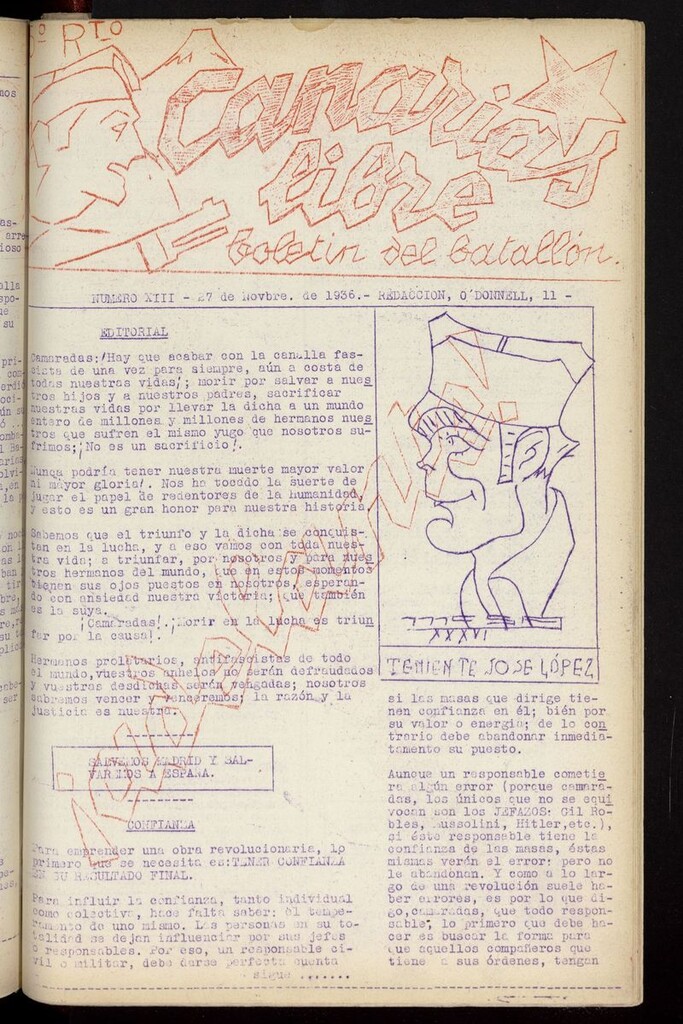 5º RTO
Canarias
libre
boletin del batallón.
NUMERO XIII - 27 de Novbre. de 1936.- REDACCION, O'DONNELL, 11 -
EDITORIAL
Camaradas:¡Hay que acabar con la canalla fas-
cista de una vez para siempre, aún a costa de
todas nuestras vidas¡; morir por salvar a nues
tros hijos y a nuestros padres, sacrificar
nuestras vidas por llevar la dicha a un mundo
entero de millones y millones de hermanos nues
tros que sufren el mismo yugo que nosotros su-
frimos;¡No es un sacrificio!.
Nunqa podría tener nuestra muerte mayor valor
ni mayor gloria!. Nos ha tocado la suerte de
jugar el papel de redentores de la humanidad,
y esto es un gran honor para nuestra historia
Sabemos que el triunfo y la dicha se conquis-
tan en la lucha, y a eso vamos con toda nues-
tra vida; a triunfar, por nosotros y para nues
tros hermanos del mundo, que en estos momentos
tienen sus ojos puestos en nosotros, esperan-
do con ansiedad nuestra victoria; que también
es la suya.
¡Camaradas!.¡Morir en la lucha es triun
far por la causa!.
Hermanos proletarios, antifascistas de todo
el mundo,vuestros anhelos no serán defraudados
y vuestras desdichas serán vengadas; nosotros
sabremos vencer y venceremos; la razón y la
justicia es nuestra.
SALVEMOS MADRID Y SAL-
VAREMOS A ESPAÑA.
CONFIANZA
Para emprender una obra revolucionaria, lo
primero que se necesita es:TENER CONFIANZA
EN SU RESULTADO FINAL.
Para influir la confianza, tanto individual
como colectiva, hace falta saber: el tempe-
ramento de uno mismo. Las personas en su to-
talidad se dejan influenciar por sus jefes
o responsables. Por eso, un responsable ci-
vil o militar, debe darse perfecta cuenta
sigue .......
TENIENTE JOSE LÓPEZ
si las masas que dirige tie-
nen confianza en él; bién por
su valor o energia; de lo con
trario debe abandonar inmedia-
tamente su puesto.
Aunque un responsable cometie
ra algún error (porque camara-
das, los únicos que no se equi
vocan son los JEFAZOS: Gil Ro-
bles, Mussolini, Hitler,etc.),
si éste responsable tiene la
confianza de las masas, éstas
mismas verán el error: pero no
le abandonan. Y como a lo lar-
go de una revolución suele ha-
ber errores, es por lo que di-
go,camaradas, que todo respon-
sable, lo primero que debe ha-
cer es buscar la forma para
que aquellos compañeros que
tiene a sus órdenes, tengan